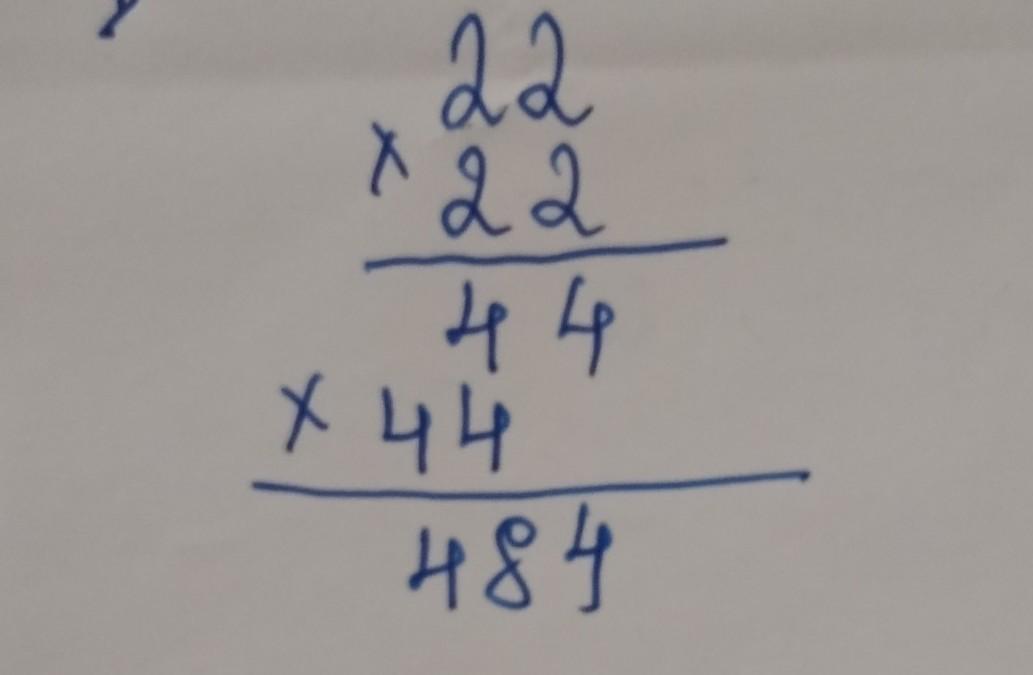 22
× 22
44
× 44
484